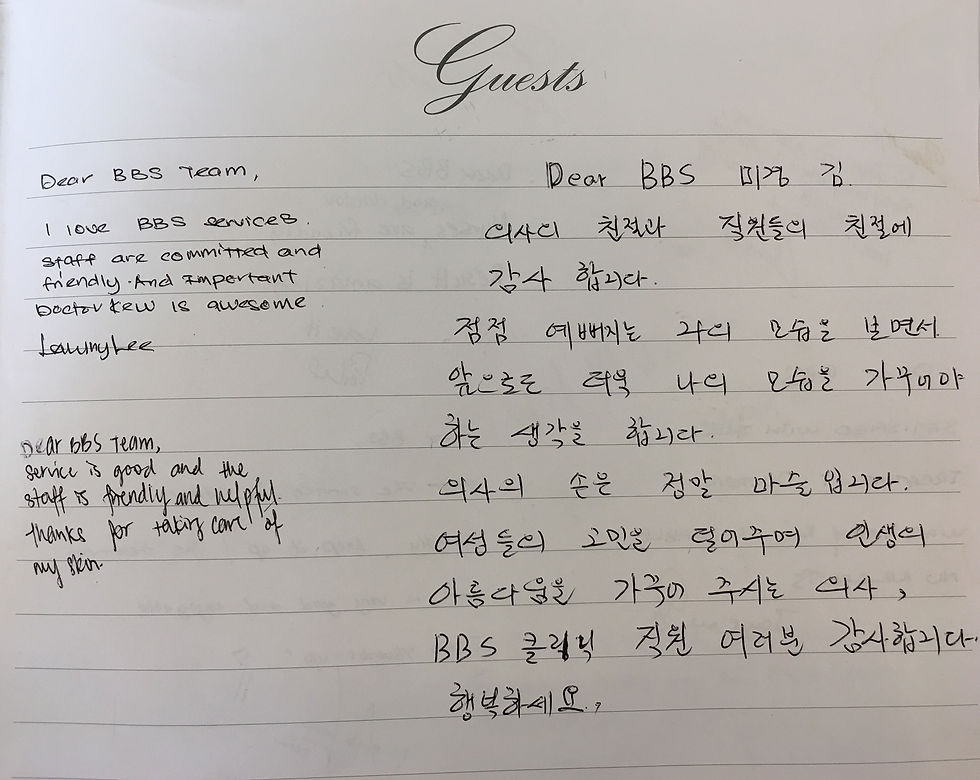 Guests
Dear BBS Team,
I love BBS services.
staff are committed and
friendly. And Important
Doctor kew is awesome
Dear BBS Team,
service is good and the
staff is friendly and helpful.
thanks for taking care of
my skin.
Dear BBS 미경 김.
의사의 친절과 직원들의 친절에
감사 합니다.
점점 예뻐지는 나의 모습을 보면서
앞으로도 더욱 나의 모습을 가꾸어야
하는 생각을 합니다.
의사의 손은 정말 마술입니다.
여성들의 고민을 덜어주며 인생의
아름다움을 가꾸어 주시는 의사,
BBS 클리닉 직원 여러분 감사합니다.
행복하세요.,